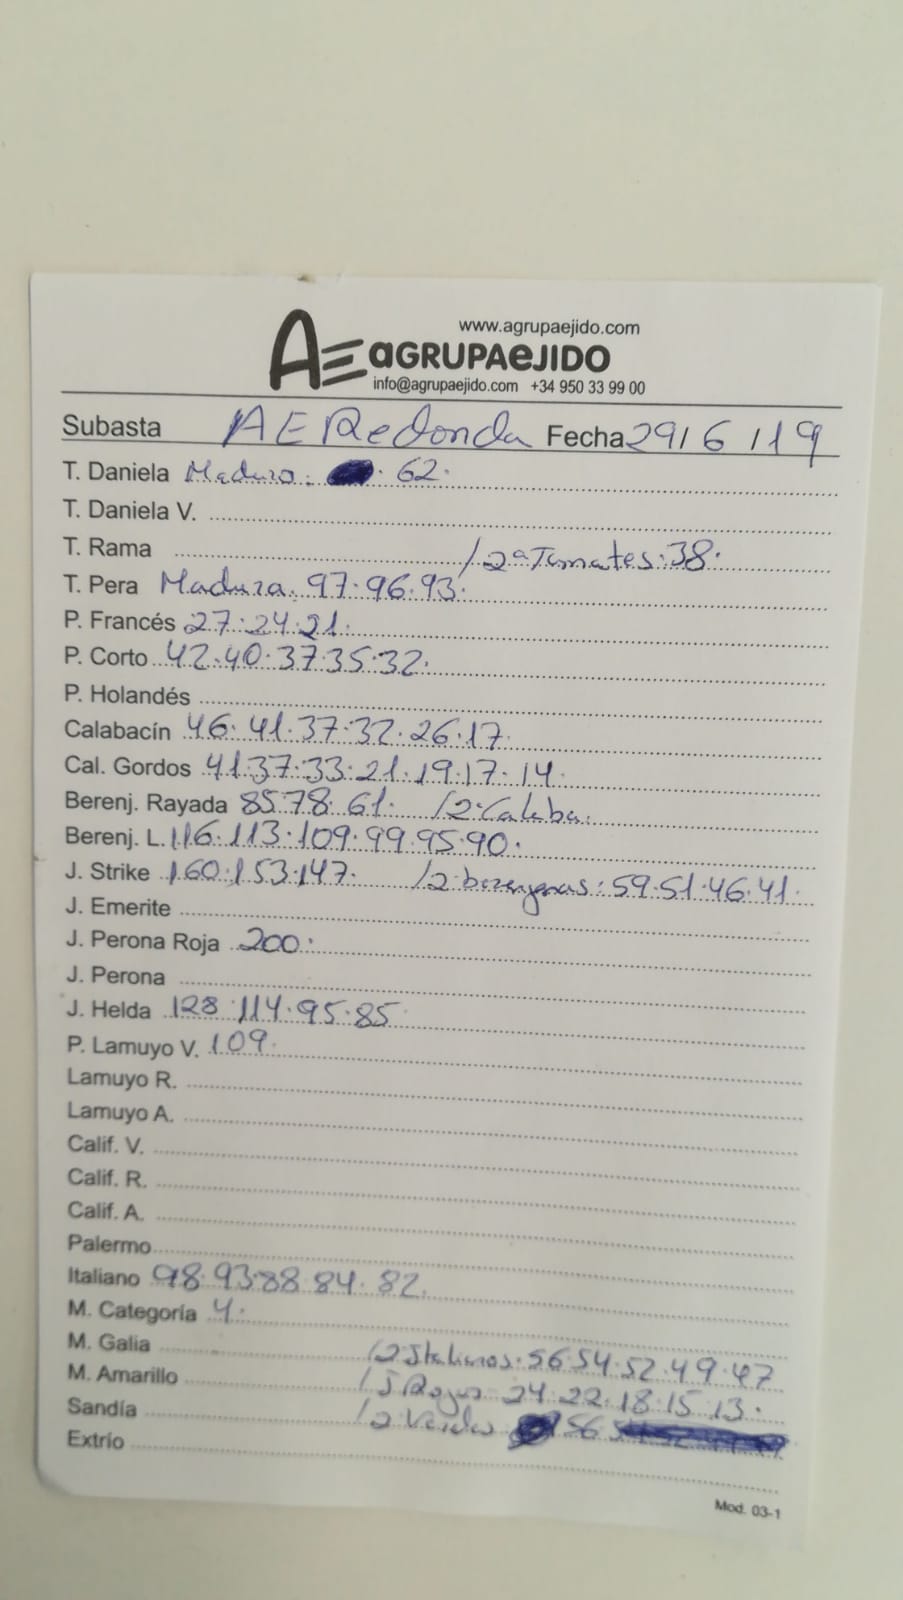 www.agrupaejido.com
AE aGRUPAeJIDO
info@agrupaejido.com +34 950 33 99 00
Subasta AE Redonda Fecha 29/6/19
T. Daniela Maduro. 62.
T. Daniela V.
T. Rama /2ª Tomates: 38.
T. Pera Madura. 97.96.93.
P. Francés 27.24.21.
P. Corto 42.40.37.35.32.
P. Holandés
Calabacín 46.41.37.32.26.17.
Cal. Gordos 41.37.33.21.19.17.14.
Berenj. Rayada 85.78.61. /2ª Calaba.
Berenj. L. 116.113.109.99.95.90.
J. Strike 160.153.147. /2 berenjenas: 59.51.46.41.
J. Emerite
J. Perona Roja 200.
J. Perona
J. Helda 128.114.95.85
P. Lamuyo V. 109.
Lamuyo R.
Lamuyo A.
Calif. V.
Calif. R.
Calif. A.
Palermo
Italiano 98.93.88.84.82.
M. Categoría 4.
M. Galia /2 Italianos. 56.54.52.49.47
M. Amarillo Rojos 24.22.18.15.13.
Sandía /2 Verdes 56
Extrío
Mod. 03-1